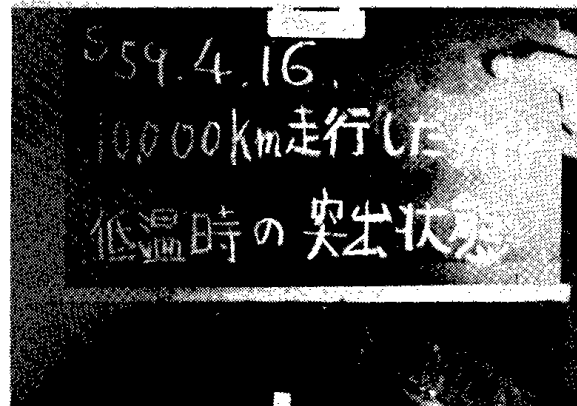 S59.4.16.
10,000km走行した
低温時の突出状態